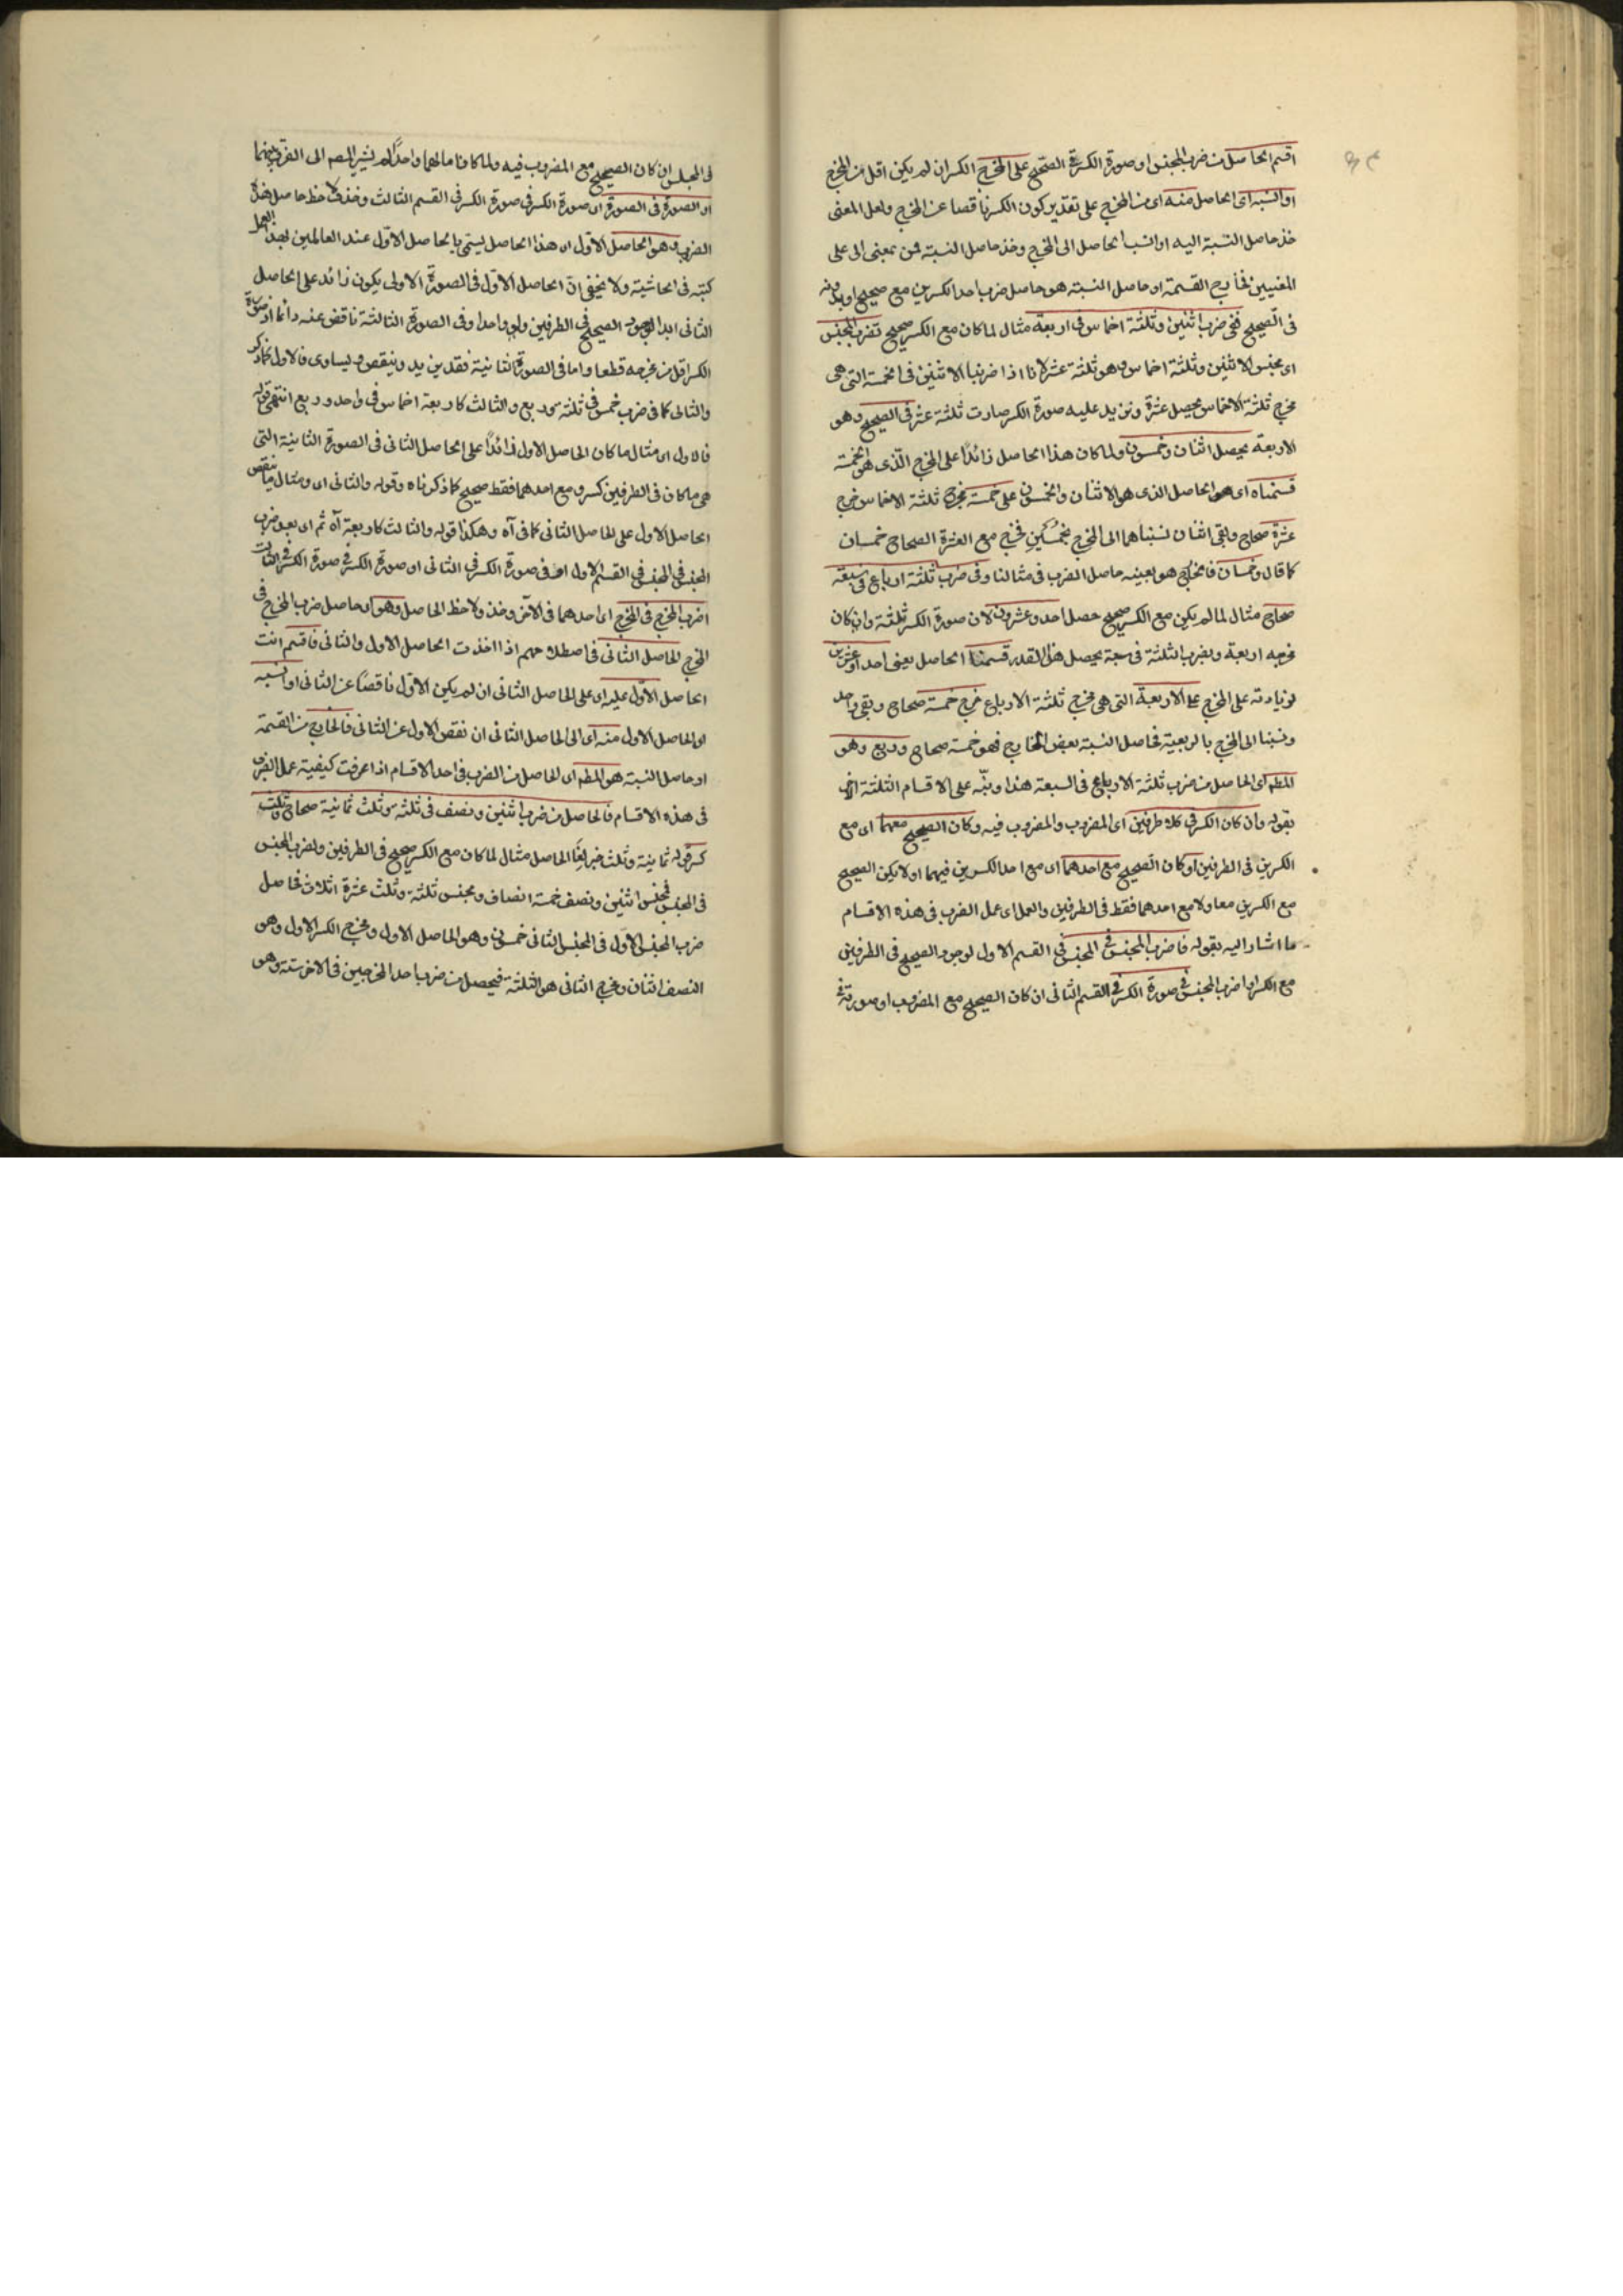 اقسم الحاصل من ضرب المجنس او صورة الكسر فى الصحيح على المخرج الكسر ان لم يكن اقل من المخرج
او انسبه اى الحاصل منه اى من المخرج على تقدير كون الكسر ناقصا عن المخرج ولعل المعنى
خذ حاصل النسبة اليه او انسب الحاصل الى المخرج وخذ حاصل النسبة فمن بمعنى الى على
المعنيين فخارج القسمة او حاصل النسبة هو حاصل ضرب احد الكسرين مع صحيح او بدونه
فى الصحيح ففى ضرب اثنين وثلثة اخماس فى اربعة مثال لما كان مع الكسر صحيح تضرب المجنس
اى مجنس الاثنين وثلثة اخماس وهو ثلثة عشر لانا اذا ضربنا الاثنين فى الخمسة التى هى
مخرج ثلثة الاخماس يحصل عشرة ونزيد عليه صورة الكسر صارت ثلثة عشر فى الصحيح وهو
الاربعة يحصل اثنان وخمسون ولما كان هذا الحاصل زائدا على المخرج الذى هو الخمسة
قسمناه اى هو الحاصل الذى هو الاثنان والخمسون على خمسة مخرج ثلثة الاخماس خرج
عشرة صحاح وبقى اثنان نسبناهما الى المخرج بخمسين فخرج مع العشرة الصحاح خمسان
كما قال وخمسان فالخارج هو بعينه حاصل الضرب فى مثالنا وفى ضرب ثلثة ارباع فى سبعة
صحاح مثال لما لم يكن مع الكسر صحيح حصل احد وعشرون لان صورة الكسر ثلثة وان كان
مخرجه اربعة وبضرب الثلثة فى سبعة يحصل هذا القدر قسمنا الحاصل يعنى احدا وعشرين
لزيادته على المخرج على الاربعة التى هى مخرج ثلثة الارباع خرج خمسة صحاح وبقى واحد
ونسبنا الى المخرج بالربعية فحاصل النسبة بعض الخارج فهو خمسة صحاح وربع وهو
المطم اى الحاصل من ضرب ثلثة الارباع فى السبعة هذا ونبّه على الاقسام الثلثة الاخر
بقوله وان كان الكسر فى كلا طرفين اى المضروب والمضروب فيه وكان الصحيح معهما اى مع
الكسرين فى الطرفين او كان الصحيح مع احدهما اى مع احد الكسرين فيهما او لا يكن الصحيح
مع الكسرين معا ولا مع احدهما فقط فى الطرفين والعمل اى عمل الضرب فى هذه الاقسام
ما اشار اليه بقوله فاضرب المجنس فى المجنس فى القسم الاول لوجود الصحيح فى الطرفين
مع الكسر او اضرب المجنس فى صورة الكسر فى القسم الثانى ان كان الصحيح مع المضروب او صورته
فى المجنس ان كان الصحيح مع المضروب فيه ولما كانا مالهما واحدا لم يشر المصم الى الفرق بينهما
او الصورة فى الصورة اى صورة الكسر فى صورة الكسر فى القسم الثالث وخذ ولاحظ حاصل هذا
الضرب وهو الحاصل الاول اى هذا الحاصل يسمى بالحاصل الاول عند العالمين بهذا العمل
كتبه فى الحاشية ولا يخفى ان الحاصل الاول فى الصورة الاولى يكون زائد على الحاصل
الثانى ابدا لوجود الصحيح فى الطرفين ولو واحدا وفى الصورة الثالثة ناقص عنه دائما اذ صورة
الكسر اقل من مخرجه قطعا واما فى الصورة الثانية فقد يزيد وينقص ويساوى فالاول كما ذكر
والثانى كما فى ضرب خمس فى ثلثة وربع والثالث كاربعة اخماس فى واحد وربع انتهى قوله
فالاول اى مثال ما كان الحاصل الاول زائدا على الحاصل الثانى فى الصورة الثانية التى
هى ما كان فى الطرفين كسر ومع احدهما فقط صحيح كما ذكرناه وقوله والثانى اى ومثال ما ينقص
الحاصل الاول على الحاصل الثانى كما فى آه وهكذا قوله والثالث كاربعة آه ثم اى بعد ضرب
المجنس فى المجنس فى القسم الاول او فى صورة الكسر فى الثانى او صورة الكسر فى صورة الكسر فى الثالث
اضرب المخرج فى المخرج اى احدهما فى الآخر وخذ ولاحظ الحاصل وهو اى حاصل ضرب المخرج فى
المخرج الحاصل الثانى فى اصطلاحهم اذا اخذت الحاصل الاول والثانى فاقسم انت
الحاصل الاول عليه اى على الحاصل الثانى ان لم يكن الاول ناقصا عن الثانى او انسبه
اى الحاصل الاول منه اى الى الحاصل الثانى ان نقص الاول عن الثانى فالخارج من القسمة
او حاصل النسبة هو المطم اى الحاصل من الضرب فى احد الاقسام اذا عرفت كيفية عمل الضرب
فى هذه الاقسام فالحاصل من ضرب اثنين ونصف فى ثلثة وثلث ثمانية صحاح وثلث
كسر قوله ثمانية وثلث خبر لقوله الحاصل مثال لما كان مع الكسر صحيح فى الطرفين ولضرب المجنس
فى المجنس فمجنس اثنين ونصف خمسة انصاف ومجنس ثلثة وثلث عشرة اثلاث فحاصل
ضرب المجنس الاول فى المجنس الثانى خمسون وهو الحاصل الاول ومخرج الكسر الاول وهو
النصف اثنان ومخرج الثانى هو الثلثة فيحصل من ضرب احد المخرجين فى الاخر ستة وهو